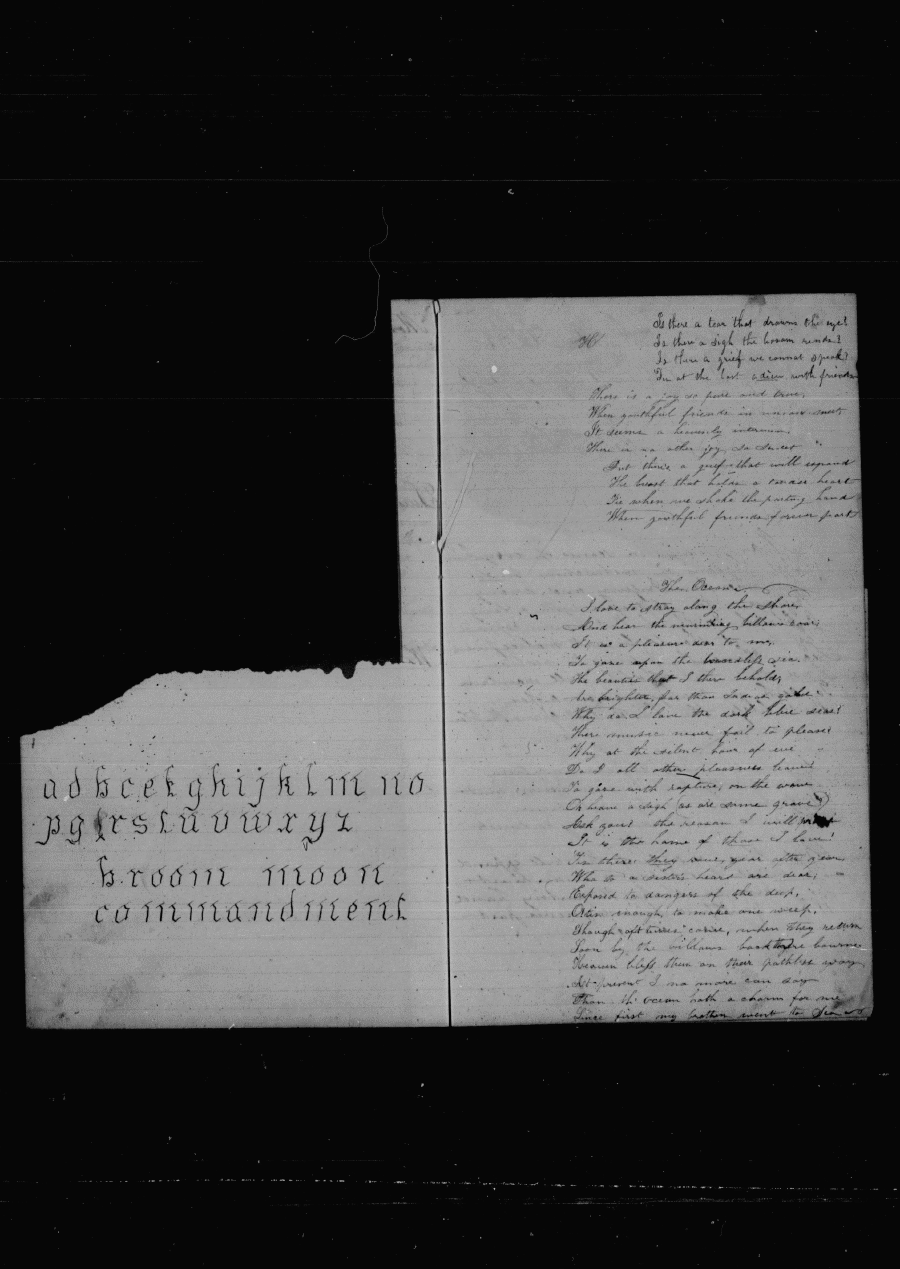 a d b c e f g h i j k l m n o
p q r s t u v w x y z
broom moon
commandment
Is there a tear that drowns the eye?
Is there a sigh the bosom rends?
Is there a grief we cannot speak?
Tis at the last adieu with friends
There is a joy so pure and true,
When youthful friends in union meet
It seems a heavenly interview,
There is no other joy so sweet
But there's a grief that will expand
The breast that hides a tender heart
Tis when we shake the parting hand
When youthful friends forever part
The Ocean
I love to stray along the shore,
And hear the murmuring billows roar,
It is a pleasure dear to me,
To gaze upon the boundless sea.
The beauties that I there behold,
Are brighter far than Indias gold
Why do I love the dark blue seas?
There music never fail to please?
Why at the silent hour of eve
Do I all other pleasures leave?
To gaze with rapture on the wave
Or heave a sigh as oer some grave?
Ask you? the reason I will
It is the home of those I love!
Tis there they rove, year after year
Who to a sisters heart are dear,
Exposed to dangers of the deep,
Often enough to make one weep,
Though oft times when they return
Soon by the billows back bourne
Heaven bless them on their pathless way
At present I no more can say
Than the ocean hath a charm for me
Since first my brother went to Sea